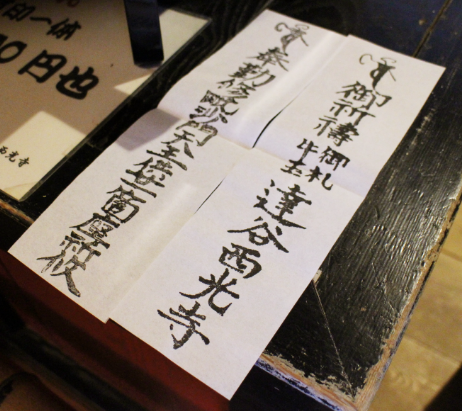 御祈祷
御札
牛玉
達谷西光寺
奉勤修毗沙門天王供一箇座祈攸
印一体
0円也
西光寺